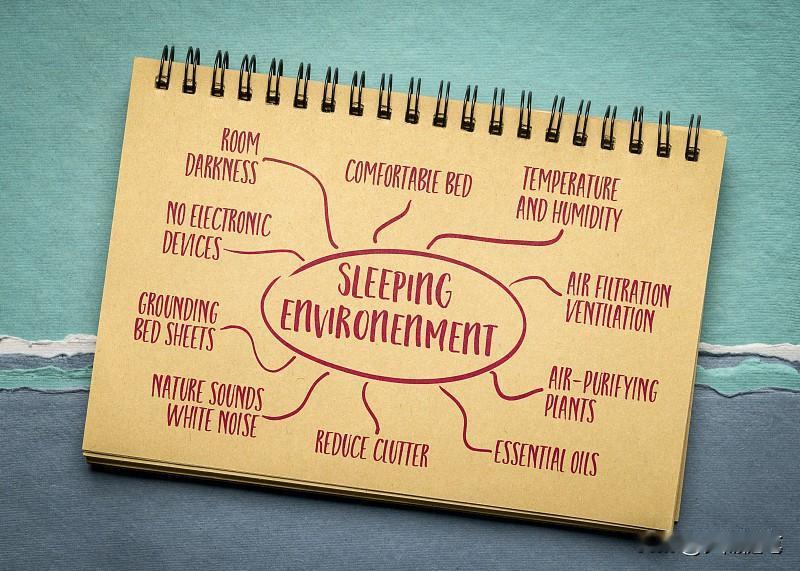 ROOM
DARKNESS
COMFORTABLE BED
TEMPERATURE
AND HUMIDITY
NO ELECTRONIC
DEVICES
SLEEPING
ENVIRONENMENT
AIR FILTRATION
VENTILATION
GROUNDING
BED SHEETS
AIR-PURIFYING
PLANTS
NATURE SOUNDS
WHITE NOISE
REDUCE CLUTTER
ESSENTIAL OILS